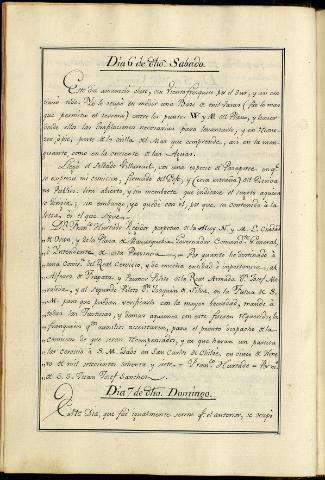 Dia 6 de dho. Sabado.
Este dia amaneció claro, con Viento fresquito por el Sur, y asi con
tinuó todo. Se le ocupó en medir una Base de mil varas (lo mas
que permite el terreno) entre los puntos W y M del Plano, y hacer
desde ellos las
te, copie, parte de la orilla del Mar que comprende, asi en la men
guante, como en la creciente de las Aguas.
Llegó el Soldado Villarroel, con una especie de Pasaporte en qe.
se expresa mi comision, firmado del
Publico: vino abierto, y sin membrete que indicase el sugeto aquien
se dirigia; sin embargo, yo quedé con el, por que, su contenido à la
letra, es el que sigue.
Dn. Franco. Hurtado Regidor perpetuo de la Muy N. y M. L. Ciudad
de Oran, y de la Plaza de Governador Comandte. General,
è Intendente de esta Provincia. Por quanto he destinado à
una Comisn. del Real Servicio, y de mucha entidad è importancia, al
Alferez de Fragata, y Primer Piloto de la Real Armada Dn. Josef Mo-
raleda, y al segundo Piloto Dn. Joaquin de Silva, en la Piragua de S.
M. para que puedan verificarla con la mayor brevedad, mando à
todas las Justicias, y demas aquienes con este fueren requeridos, le
franqueen qtos. auxilios necesitaren, para el pronto despacho de la
comision de que seran recompensados, y en que haran un particu
lar servicio à S. M. Dado en San Carlos de Chiloé, en cinco de Ene
ro de mil setecientos ochenta y siete = Franco. Hurtado = Por mdo.
de S. S. Juan Josef Sanchez.
Dia 7 de dho. Domingo.
Este Dia, que fué igualmente sereno qe. el anterior, se ocupó